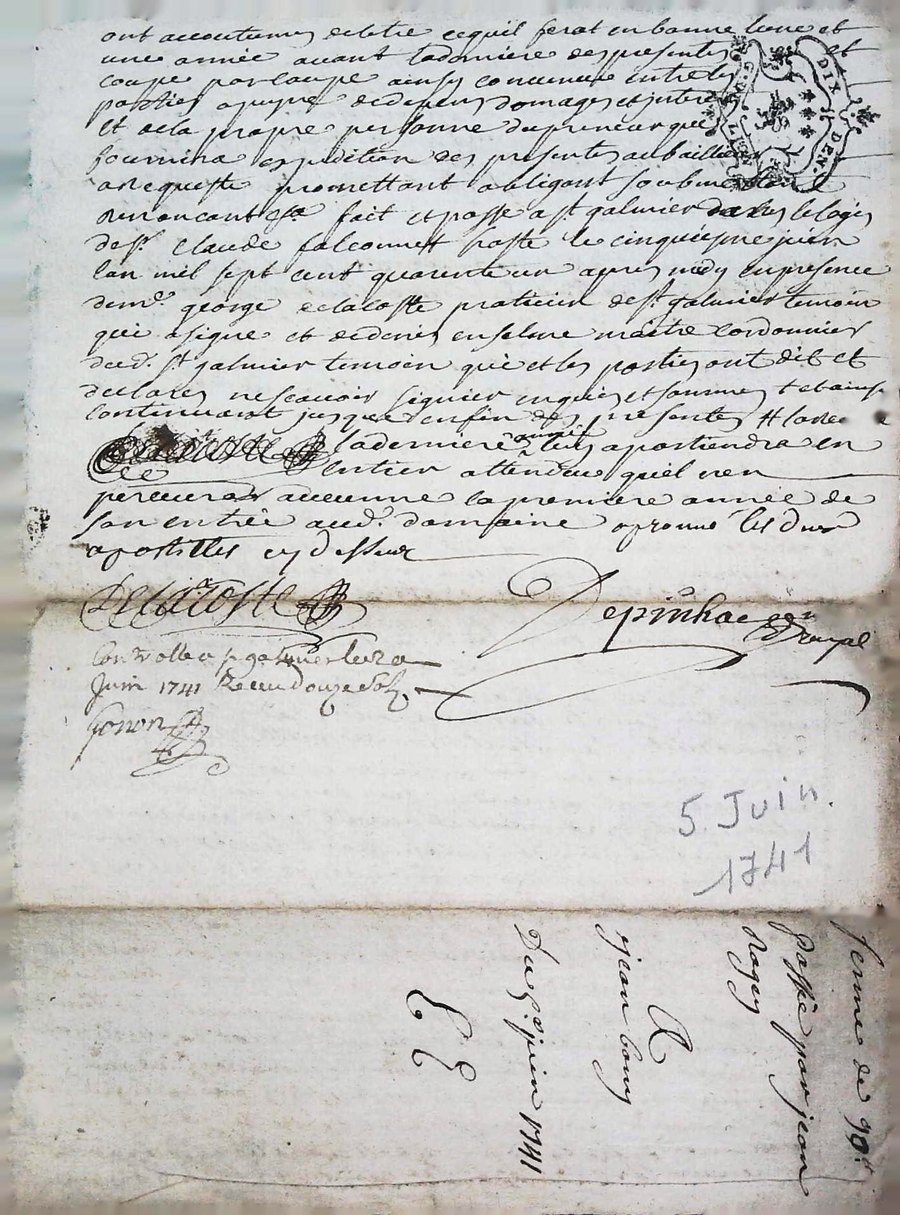 ont accoutumes de letre ce quil ferat en bonne lune et
une année avant la derniere des presentes et
coupe par coupe ainsy convenue entre les
parties a peyne de depens domages et interes
et de la propre personne du preneur qui
fournira expedition des presentes au bailleur
a requeste promettant obligeant soubmettant
renoncant &a fait et passe a st galmier dans le logis
de sr Claude falconnet hoste le cinquiesme juin
lan mil sept cent quarente un apres midy en presence
de me george delacoste praticien de st galmier temoin
qui a signe et de denis enselme maitre cordonnier
dud. st galmier temoin que et les parties ont dit et
declares ne scavoir signer enquis et sommes + et ainsi
continuant jusques en fin des presentes #
la derniere année luy apartiendra en
Delacoste
entier attendu quil nen
percevra aucunne la premiere année de
son entrée aud. domaine aprouve les deux
apostilles cy dessus
Delacoste
Depinhac
royal
Controlle a st galmier le
Juin 1741 Receu douze sols
Gonon
5 Juin
1741
ferme de 90
passée par jean
A
jean
Du 5e juin 1741
G.D.LYON
DIX DEN.